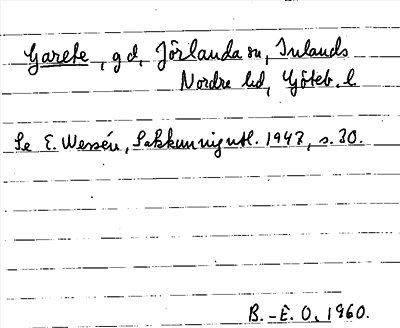 Garete, gd, Jörlanda sn, Inlands
Nordre hd, Göteb. l
Se E. Wessén, Sakkunnigutl. 1947, s. 30.
B.-E. O, 1960.